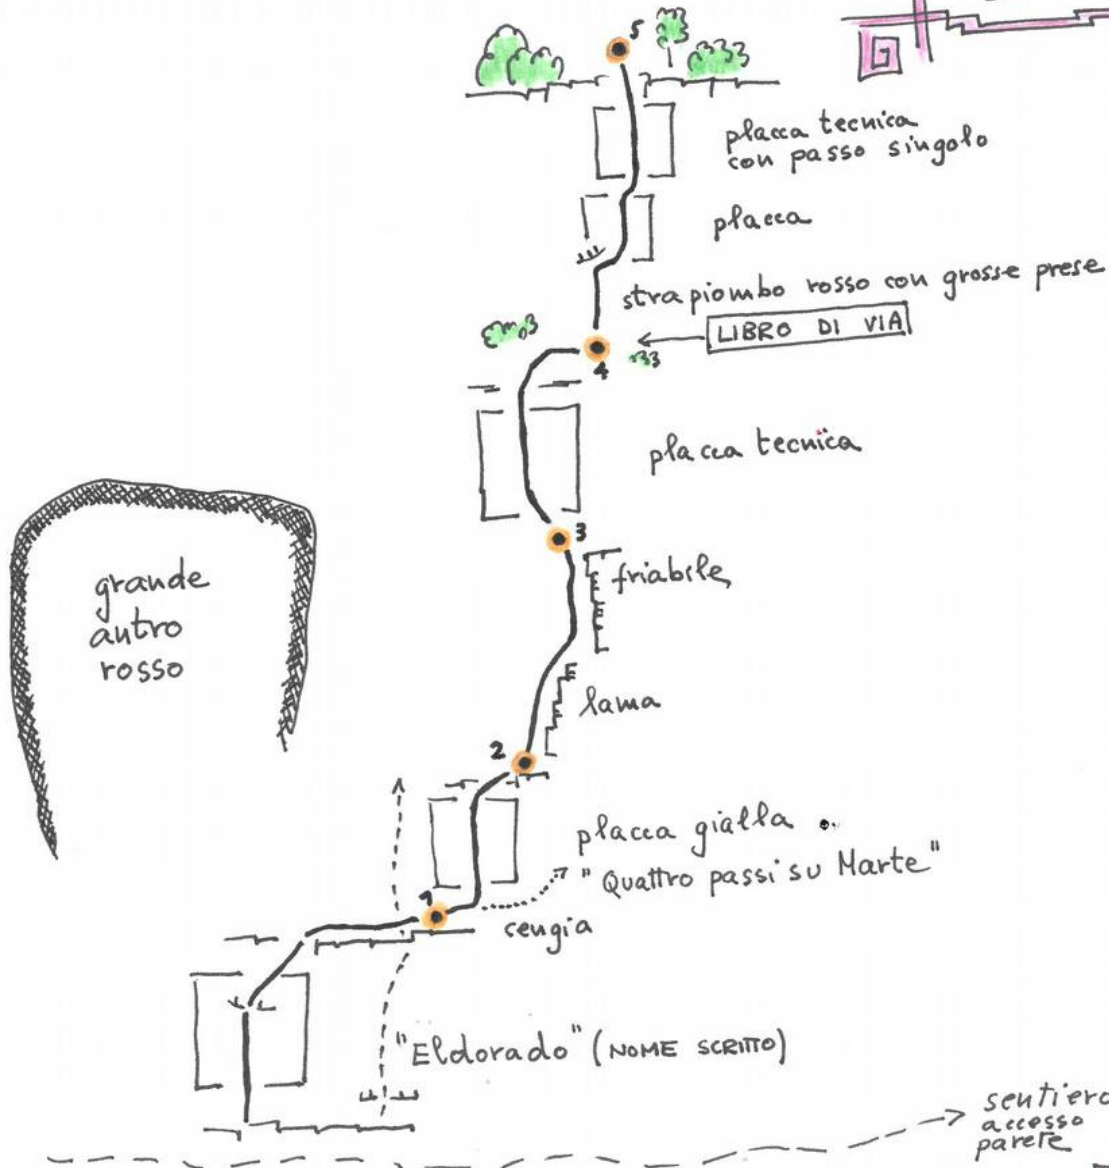 5
placca tecnica
con passo singolo
placca
strapiombo rosso con grosse prese
LIBRO DI VIA
4
placca tecnica
3
friabile
grande
antro
rosso
lama
2
placca gialla
"Quattro passi su Marte"
1
cengia
"Eldorado" (NOME SCRITTO)
sentiero
accesso
parete